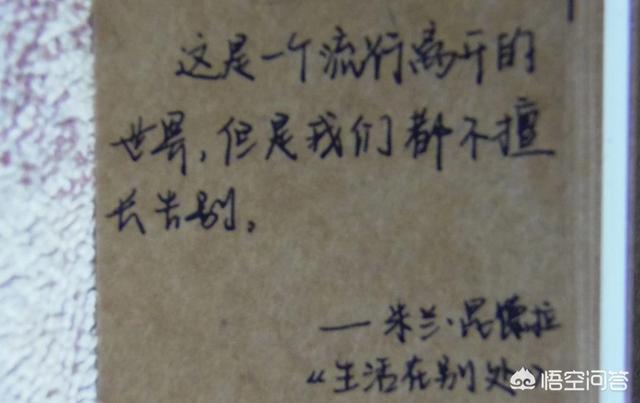 这是一个流行离开的
世界，但是我们都不擅
长告别。
——米兰·昆德拉
《生活在别处》
悟空问答